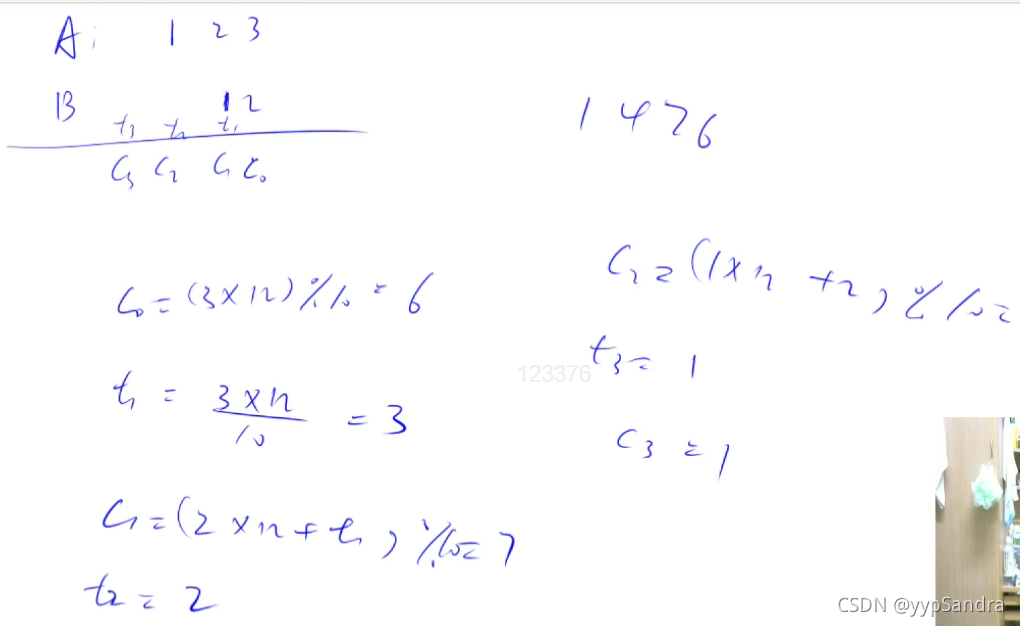 A: 1 2 3
B 1 2
t₃ t₂ t₁
C₃ C₂ C₁ C₀
1476
C₀ = (3×12)%10 = 6
t₁ = 3×12/10 = 3
C₁ = (2×12+t₁)%10 = 7
t₂ = 2
C₂ = (1×12+2)%10 =
t₃ = 1
C₃ = 1
123376
CSDN @yypSandra